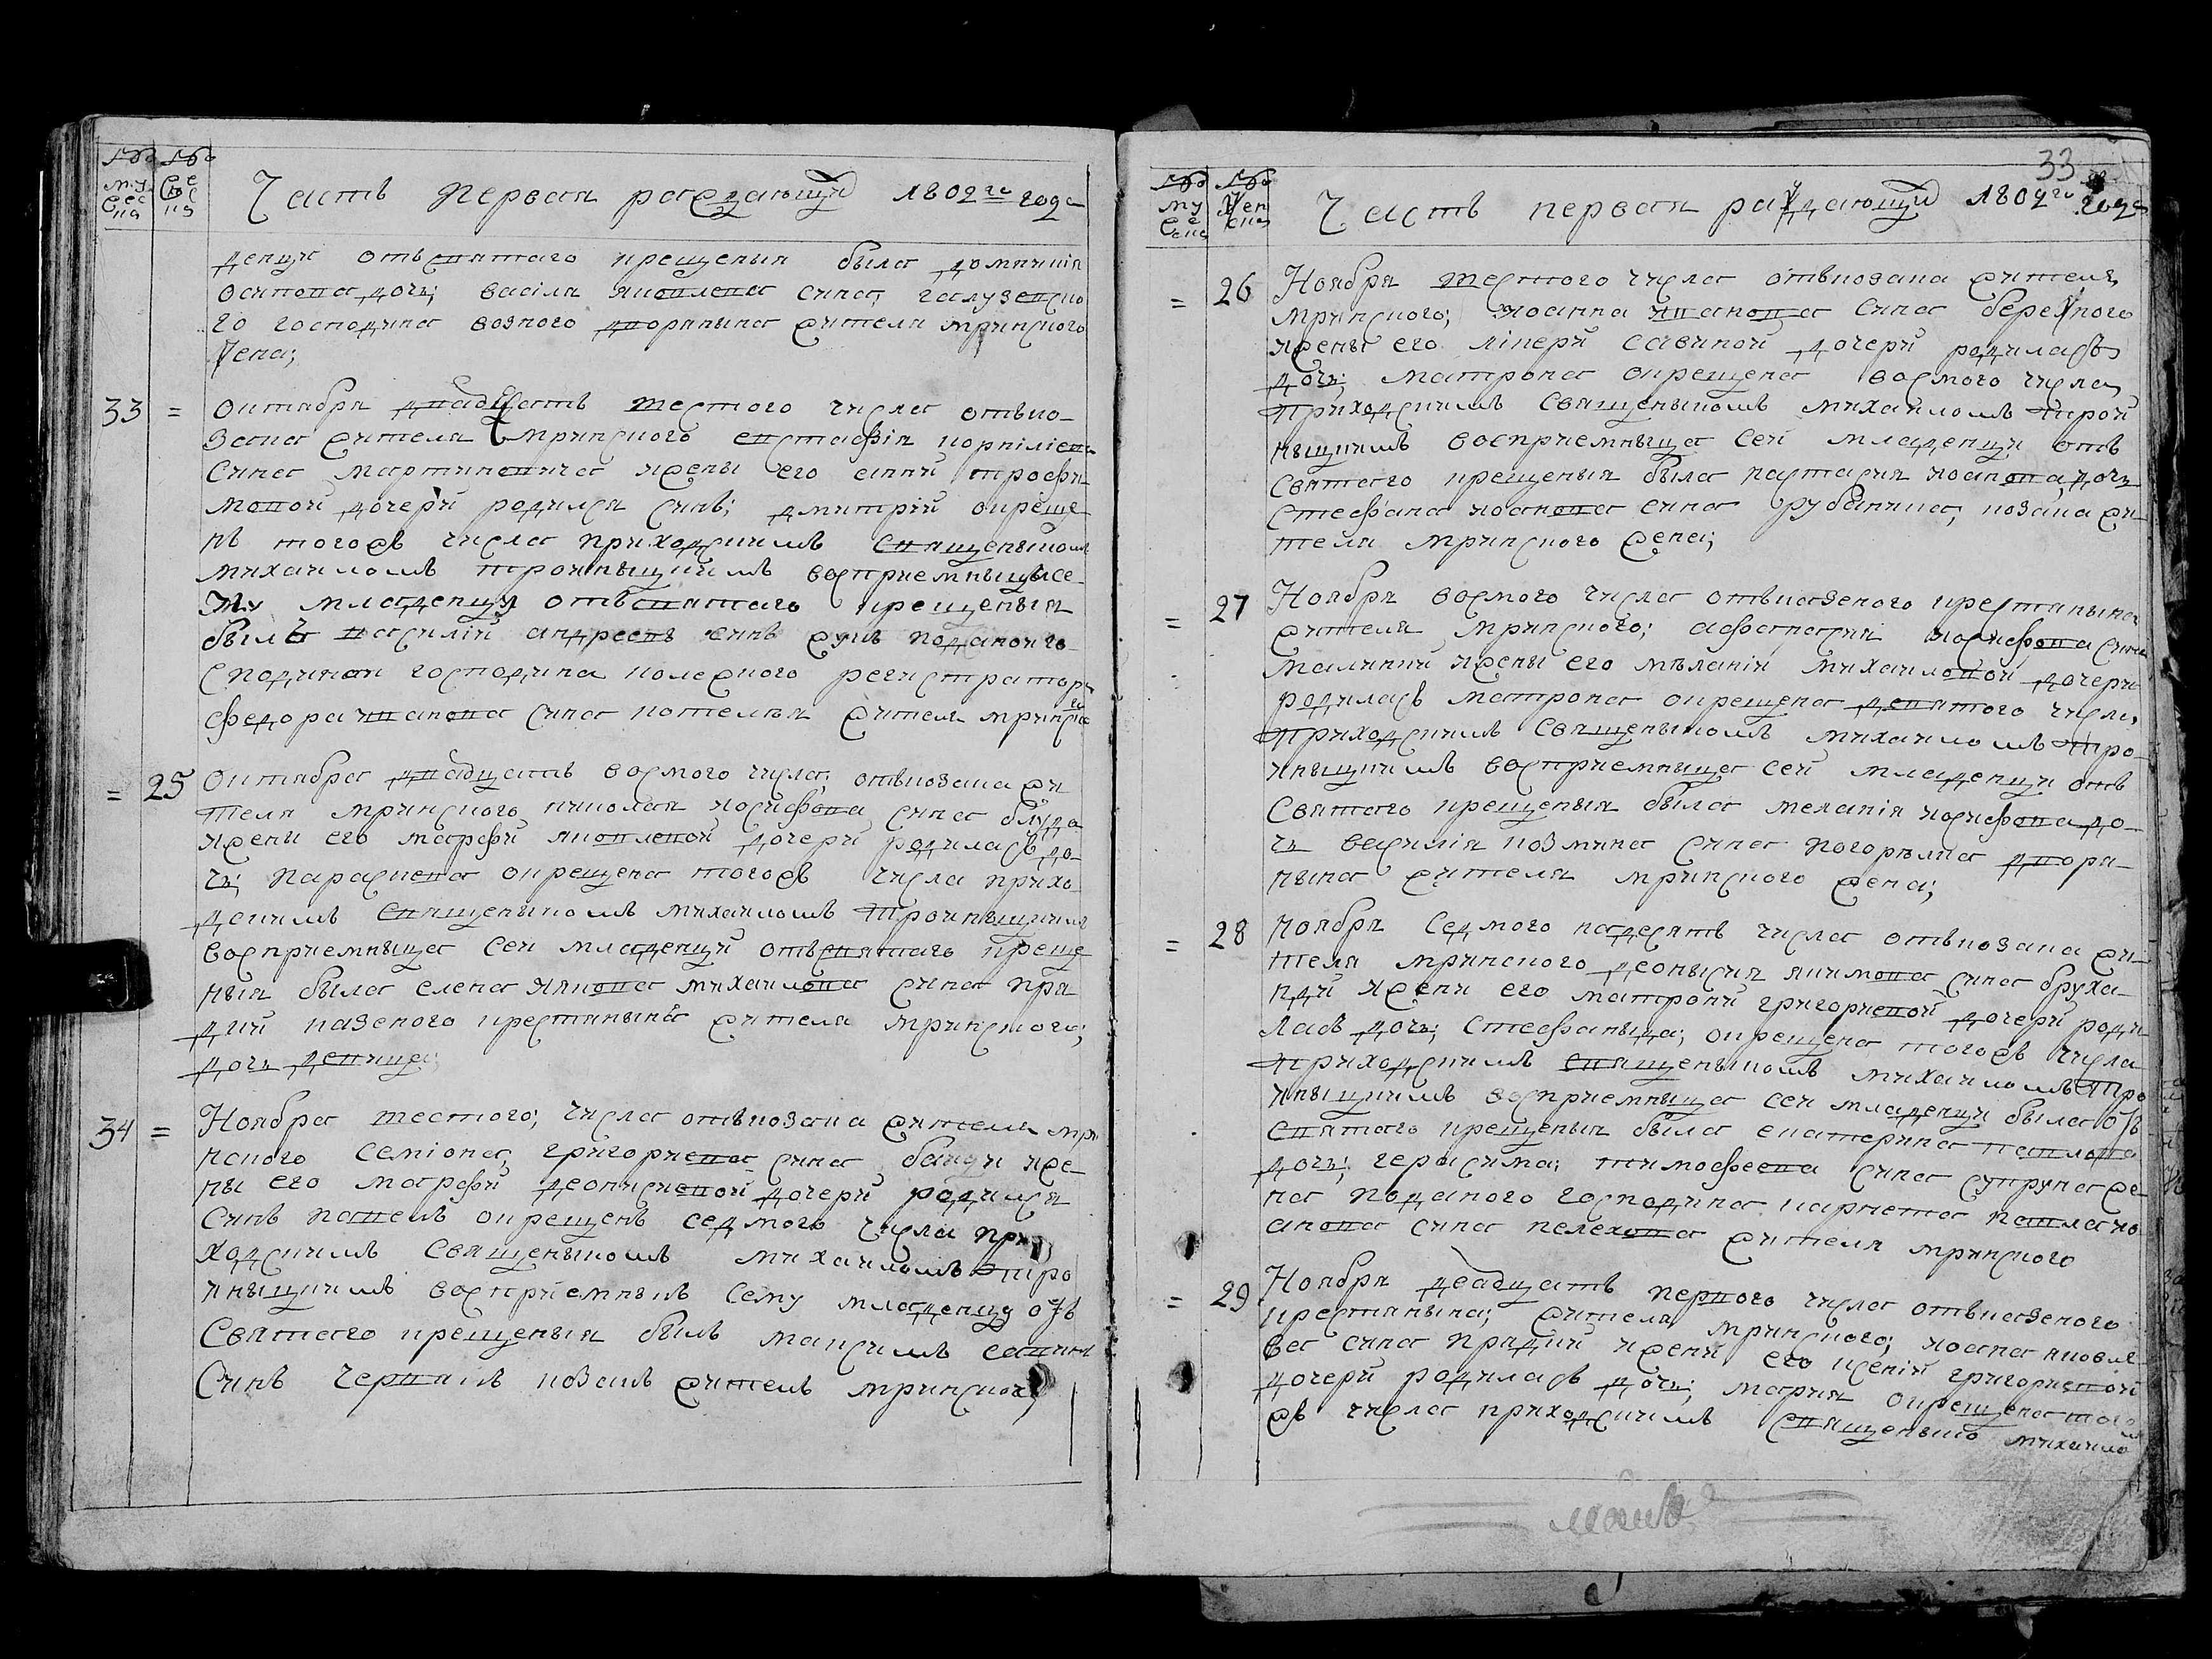 Часть первая раждающихъ 1802го года
денця отъ святаго крещения была домникия
осипова дочь; василя яковлева сина; галузенско
го господина возного дворянина жителя мринского
жена;
33 = октября двадцать шестого числа отъ ко-
зака жителя мринского евстафія корніліева
сина мартиновича жены его анни трофи-
мовой дочери родился синъ; дмитрій окреще-
нъ тогожъ числа приходскимъ священыкомъ
михаиломъ троиныцкимъ восприемныцы се-
му младенцу отъ святаго крещения
былъ василий андреевъ синъ поданои го-
сподина колежного регистратора
федора иванова сина котелня жителя мринского
= 25 октября двадцать восмого числа; отъ козака жи
теля мринского николая иосифова сина блуда
жены его марфи яковлевой дочери родилась до-
чь; параскева окрещена тогожъ числа прихо
дскимъ священыкомъ михаиломъ троиныцкимъ
восприемныца сеи младенци отъ святаго креще
ния была елена михаилова сина пра
дии казеного крестянына жителя мринского;
дочь девица;
34 = Ноября шестого; числа отъ козака жителя мри
нского семіона; григориева сина банди же-
ны его марфи деонисиевой дочери родился
синъ павелъ окрещенъ седмого числа при
ходскимъ священыкомъ михаиломъ тро
иныцкимъ восприемныкъ сему младенцу отъ
святаго крещения былъ максимъ саввинъ
синъ чернякъ козакъ жителъ мринского
33
Часть первая раждающихъ 1802го года
= 26 Ноября шестого числа отъ козака жителя
мринского; иоанна иванова сина бережного
жены его гликери савиной дочери родилась
дочь; матрона окрещена восмого числа
приходскимъ священыкомъ михаиломъ трои
ныцкимъ восприемныца сеи младенци отъ
святаго крещения была настасия иоанова дочь
стефана иоанова сина рубанника; козака жи-
теля мринского жена;
= 27 Ноября восмого числа отъ казеного крестянына
жителя мринского; афанасия иосифова сина
малинки жены его меланіи михаиловой дочери
родилась матрона окрещена девятого числа
приходскимъ священыкомъ михаиломъ тро-
иныцкимъ восприемныца сеи младенци отъ
святаго крещения была меланія иосифова до-
чь василія козмина сина погорелка дворя-
нына жителя мринского жена;
= 28 Ноября седмого надесять числа отъ козака жи-
теля мринского деонысия якимова сина бруха-
нди жени его матрони григориевой дочери роди
лась дочь; стефаныда; окрещена тогожъ числа
приходскимъ священыкомъ михаиломъ тро
иныцкимъ восприемныца сеи младенци была отъ
святаго крещения была екатерина павлова
дочь; герасима; тимофеева сина супруна же-
на поданого господина карнета павла ио
анова сина пелехова жителя мринского
= 29 Ноября двадцать первого числа отъ казеного
крестянына; жителя мринского; иоана яковле
ва сина прадии жени его ксении григориевой
дочери родилась дочь; мария окрещена того
жъ числа приходскимъ священыко михаило